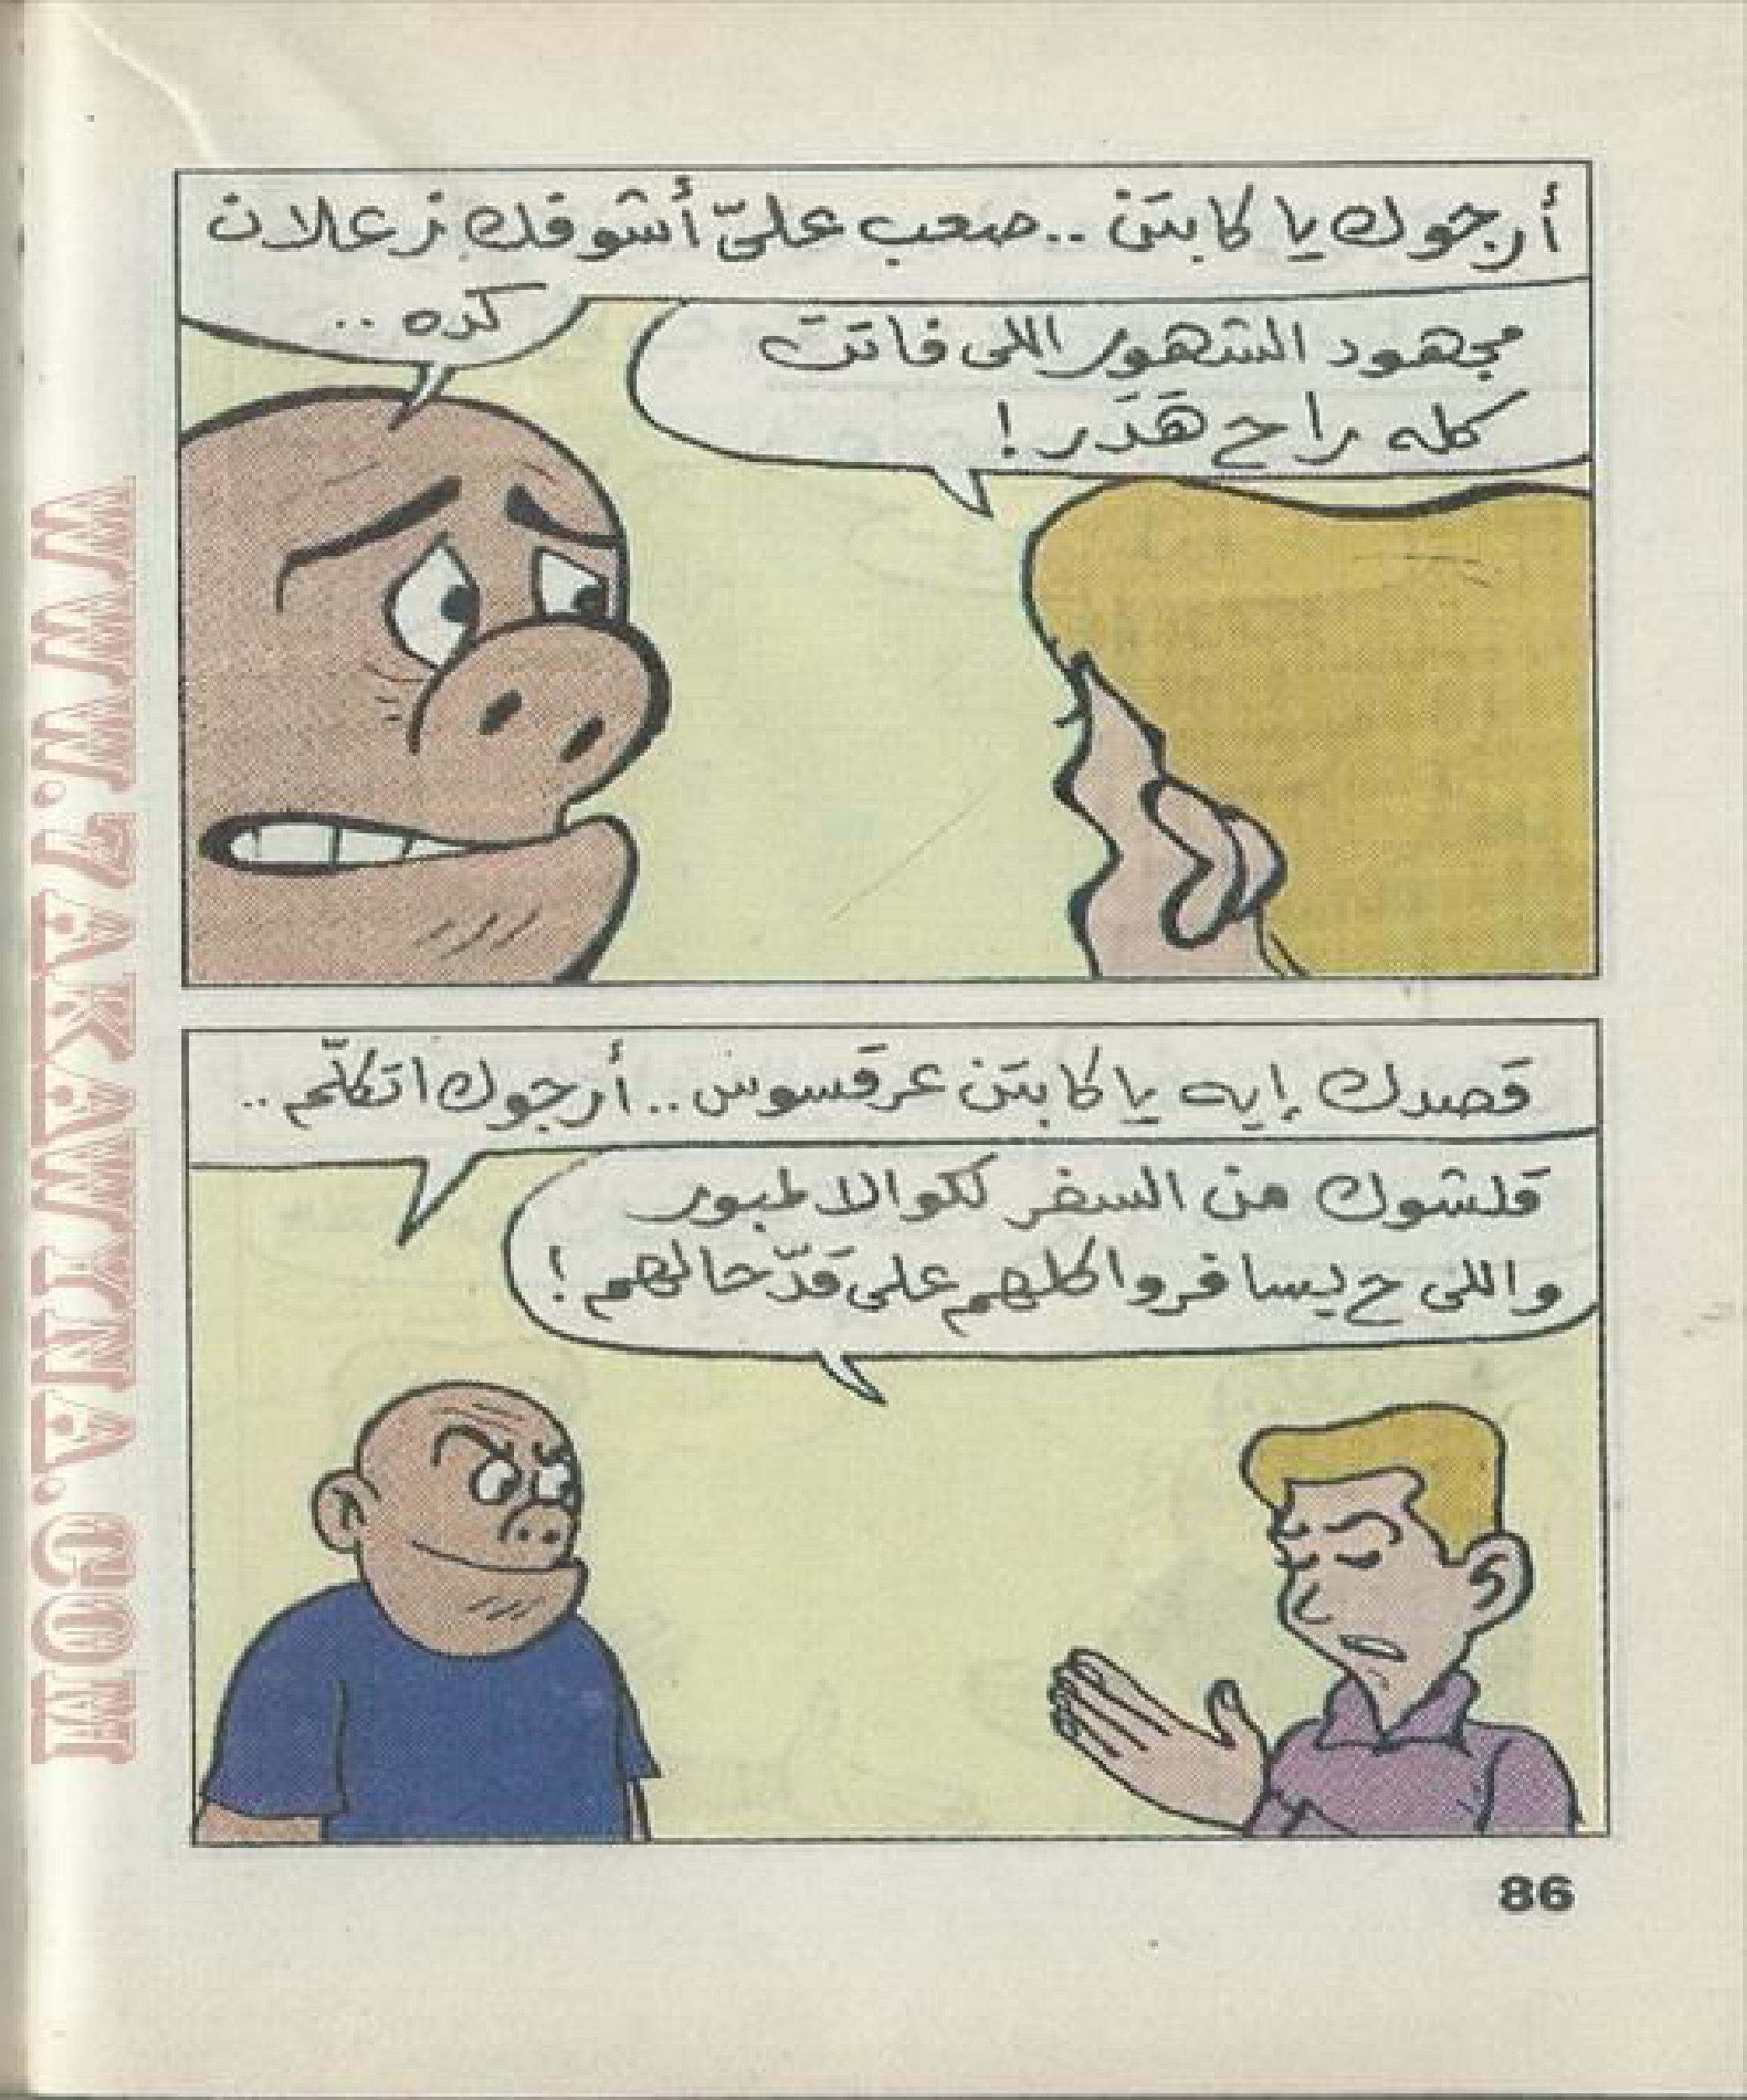 أرجوك يا كابتن .. صعب علىّ أشوفك زعلان
كده ..
مجهود الشهور اللى فاتت
كله راح هَدَر !
قصدك إيه يا كابتن عرقسوس .. أرجوك اتكلّم ..
قلشوك من السفر لكوالالمبور
واللى ح يسافروا كلهم على قدّ حالهم !
86
WWW.7AKAWINA.COM